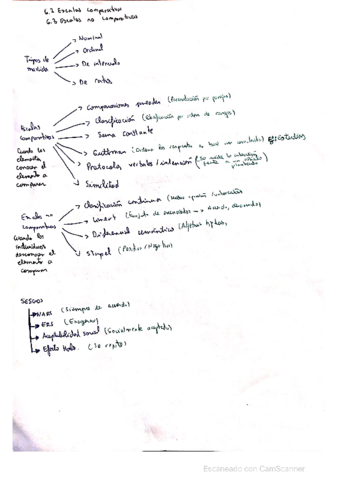 6.2 Escalas comparativas
6.3 Escalas no comparativas
Tipos de
medida
Nominal
Ordinal
De intervalo
De ratios
Escalas
comparativas
Cuando los
elementos
conocen el
elemento a
comparar
Comparaciones pareadas (Presentación por parejas)
Clasificación (Clasificación por orden de rangos)
Suma constante
Guttman (Ordena las respuestas
Protocolos verbales / intención (Se mide la intención
frente a un objeto
Similitud
Escalas no
comparativas
Cuando los
individuos
desconocen el
elemento a
comparar
Clasificación continua
Likert (Conjunto de enunciados → Acuerdo, desacuerdo)
Diferencial semántico (Adjetivos
Stapel (Positivo/Negativo)
SESGOS
NARS (Siempre de acuerdo)
ERS (Extremos)
Aceptabilidad social (Socialmente aceptado)
Efecto Halo. (Se repite)
Escaneado con CamScanner